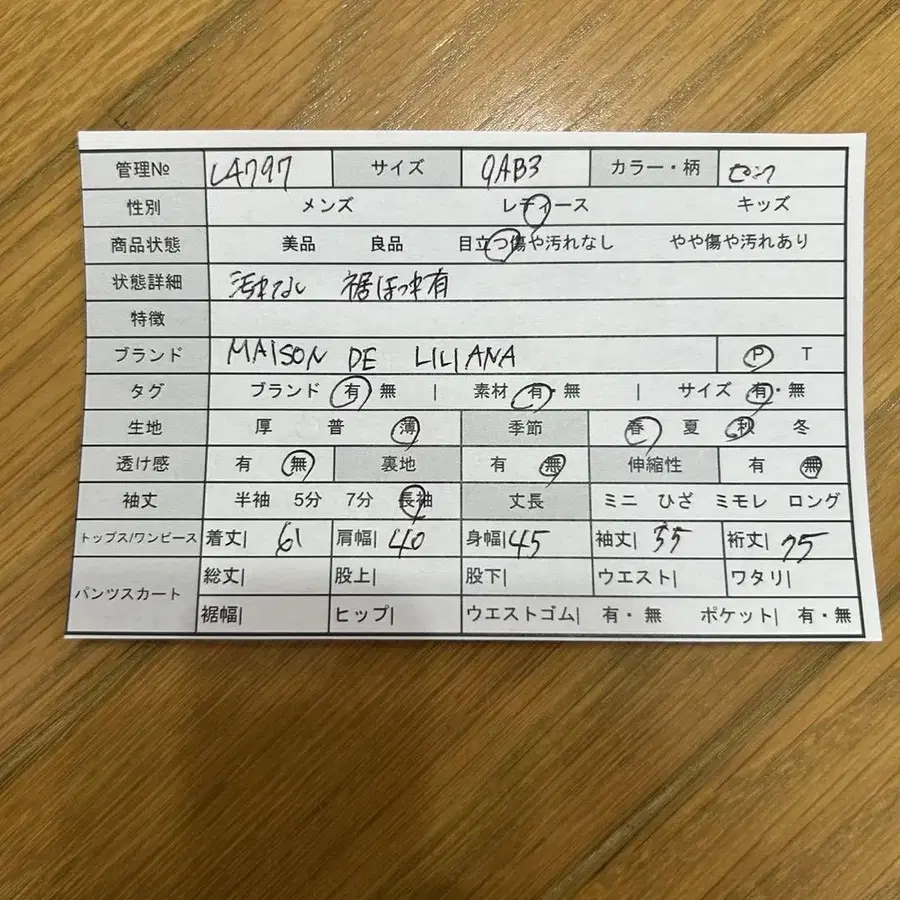 管理№ L4797 サイズ 9AB3 カラー・柄 ピンク
性別 メンズ レディース キッズ
商品状態 美品 良品 目立つ傷や汚れなし やや傷や汚れあり
状態詳細 汚れなし 裾ほつれ有
特徴
ブランド MAISON DE LILIANA P T
タグ ブランド 有 無 | 素材 有・無 | サイズ 有・無
生地 厚 普 薄 季節 春 夏 秋 冬
透け感 有 無 裏地 有 無 伸縮性 有 無
袖丈 半袖 5分 7分 長袖 丈長 ミニ ひざ ミモレ ロング
トップス/ワンピース 着丈| 61 肩幅| 40 身幅| 45 袖丈| 55 裄丈| 75
パンツスカート 総丈| 股上| 股下| ウエスト| ワタリ|
裾幅| ヒップ| ウエストゴム| 有・無 ポケット| 有・無